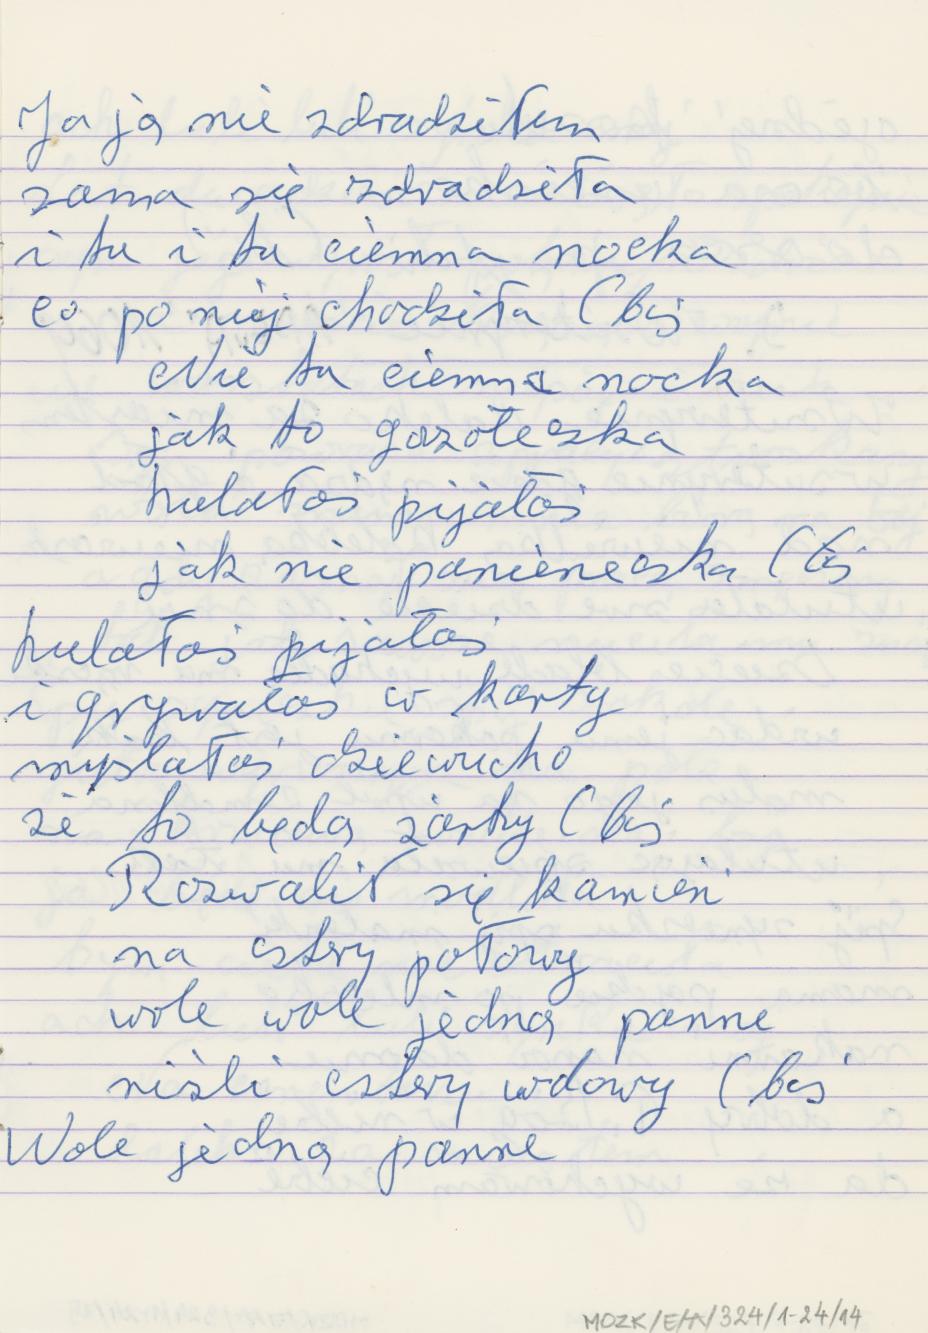 Ja ją nie zdradziłem
sama się zdradziła
i ta i ta ciemna nocka
co po niej chodziła (bis
Nie ta ciemna nocka
jak to gorzołeczka
hulałaś pijałaś
jak nie panieneczka (bis
hulałaś pijałaś
i grywałaś w karty
myślałaś dziewucho
że to będą żarty (bis
Rozwalił się kamień
na cztery połowy
wole wole jedną panne
niżli cztery wdowy (bis
Wole jedną panne
MOZK/E/A/324/1-24/14